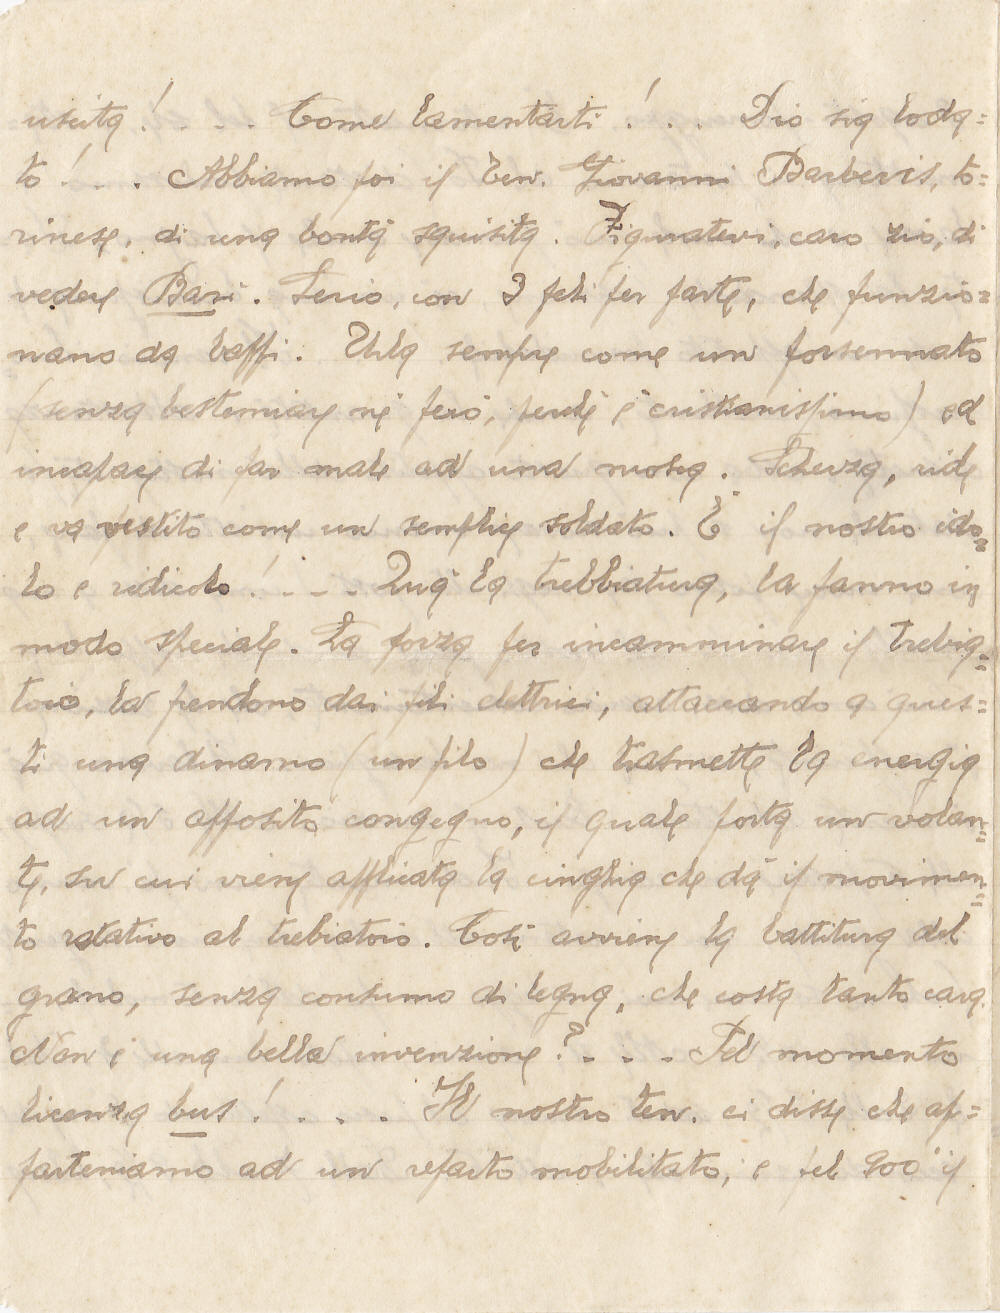 uscita! . . . . Come lamentarti! . . . Dio sia loda=
to! . . . Abbiamo poi il Ten. Giovanni Barberis, to=
rinese, di una bontà squisita. Figuratevi, caro zio, di
vedere Bari. Serio, con 3 peli per parte, che funzio=
nano da baffi. Urla sempre come un forsennato
(senza bestemiare nè però, perchè è cristianissimo) ed
incapace di far male ad una mosca. Scherza, ride
e va vestito come un semplice soldato. È il nostro ido=
lo e ridicolo! . . . . Quà la trebbiatura, la fanno in
modo speciale. La forza per incamminare il trebia=
toio, la prendono dai fili elettrici, attaccando a ques=
ti una dinamo (un filo) che trasmette la energia
ad un apposito congegno, il quale porta un volan=
te, su cui viene applicata la cinghia che dà il movimen=
to rotativo al trebiatoio. Così avviene la battitura del
grano, senza consumo di legna, che costa tanto cara.
Non è una bella invenzione? . . . . Pel momento
licenza bus! . . . . Il nostro ten. ci disse che ap=
parteniamo ad un reparto mobilitato, e pel 900 il